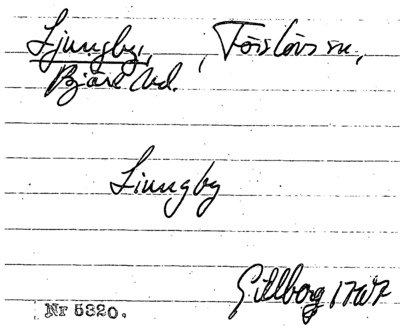 Ljungby, , Förslövs sn,
Bjäre hd.
Liungby
Gillberg
Nr 5320.